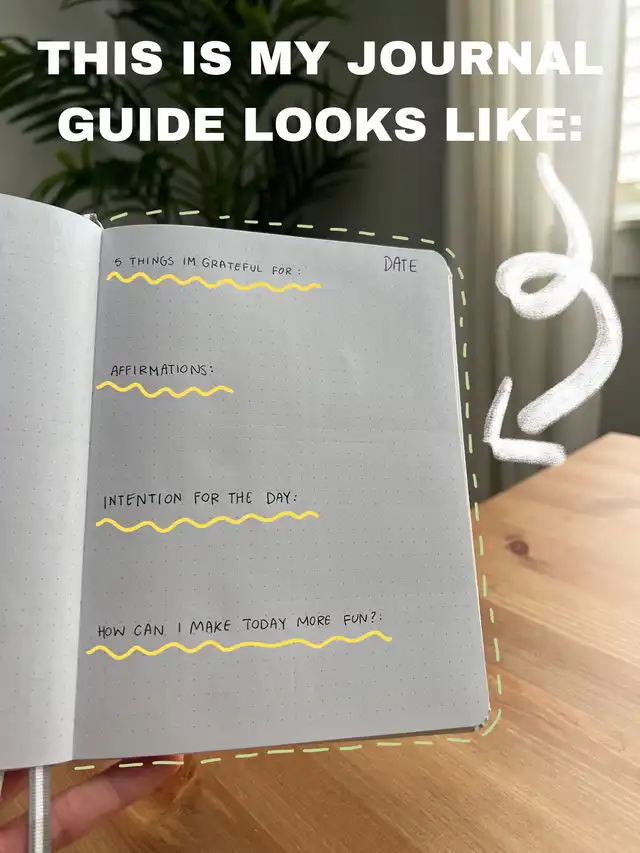 THIS IS MY JOURNAL
GUIDE LOOKS LIKE:
5 THINGS IM GRATEFUL FOR:
DATE
AFFIRMATIONS:
INTENTION FOR THE DAY:
HOW CAN I MAKE TODAY MORE FUN?: